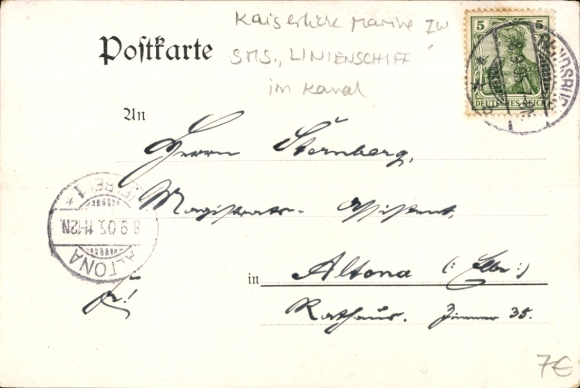 Kaiserliche Marine IW
SMS., LINIENSCHIFF
im Kanal
Postkarte
5 5
DEUTSCHES REICH
An
Herrn Sternberg,
Magistrats-Assistent,
ALTONA
8.9.05. 11-12N.
in Altona (: Elbe :)
Rathaus. Zimmer 35.
7€